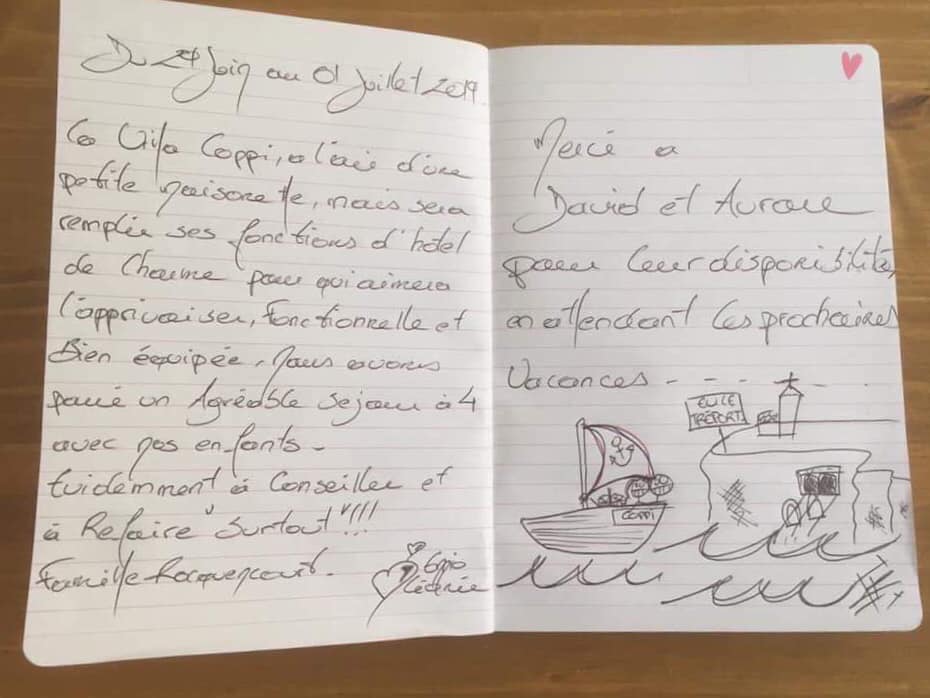 Du 24 Juin au 01 Juillet 2019.
Coppi, a l'air d'une
petite maisonette, mais sera
remplir ses fonctions d'hôtel
de Charme pour qui aimera
l'apprivoiser, Fonctionnelle et
Bien équipée. Nous avons
passé un Agréable sejour à 4
avec nos enfants -
Evidemment à Conseiller et
à Refaire "surtout"!!!
Famille
Merci a
David et Aurore
pour leur disponibilité,
en attendant les prochaines
Vacances - - - -
EU LE
TRÉPORT
COPPI